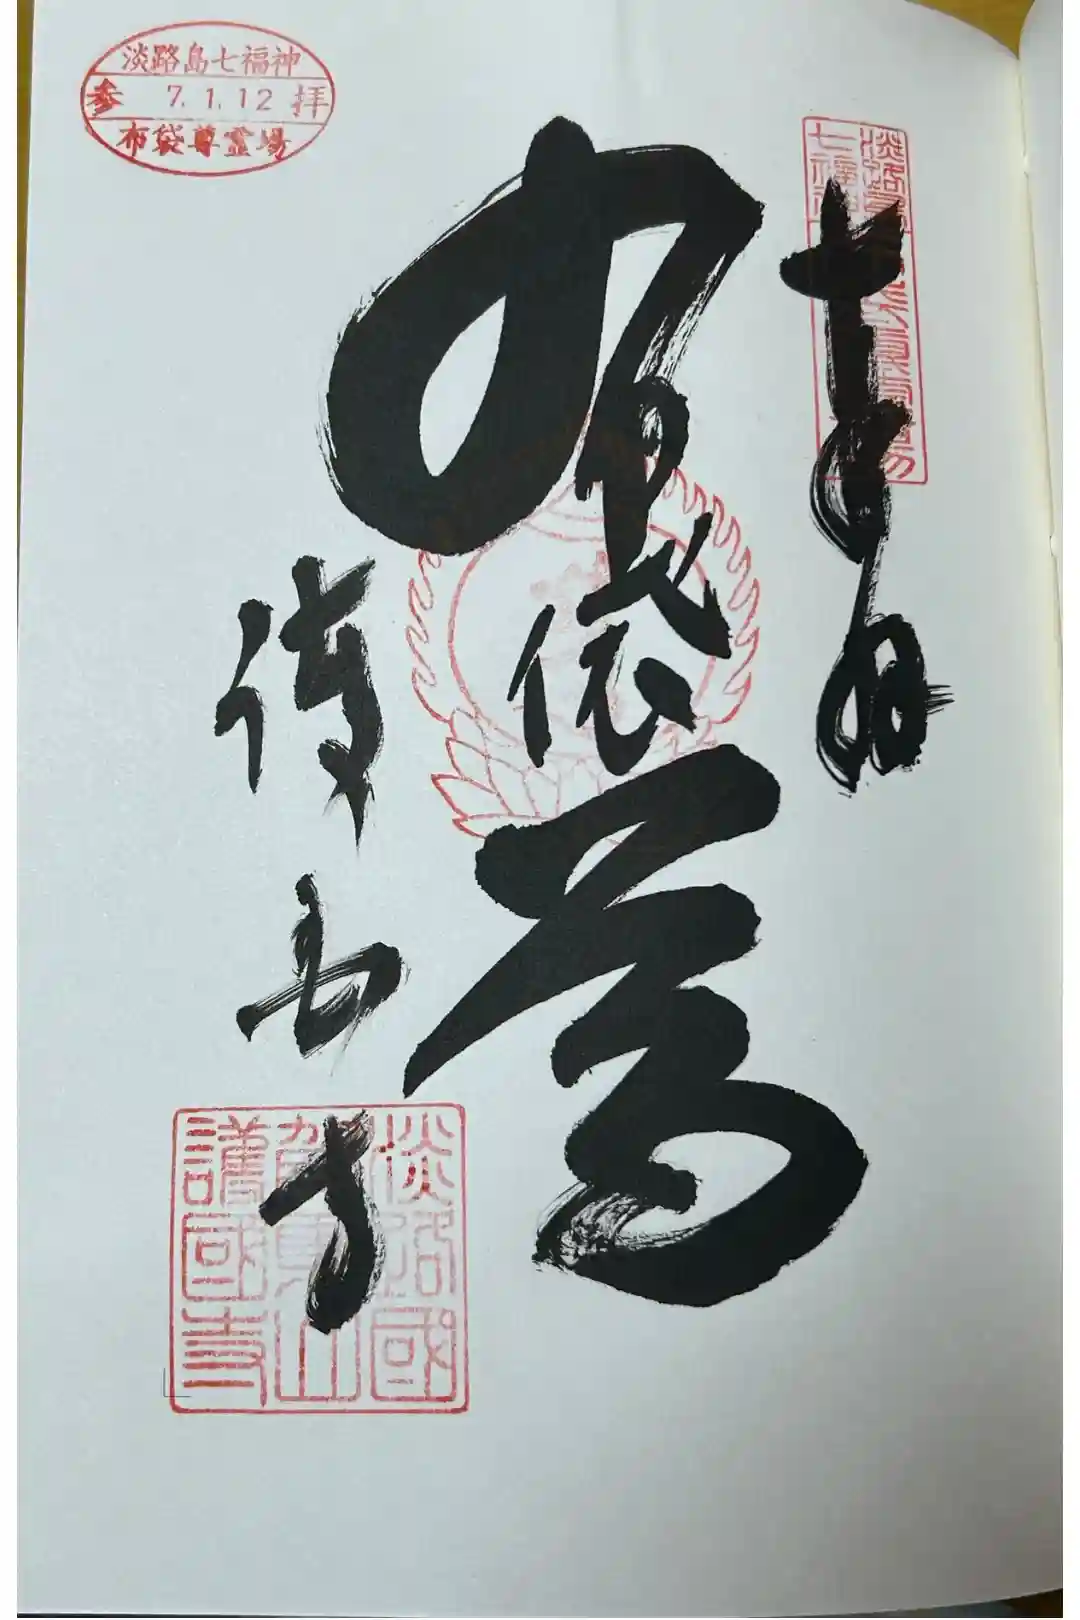 淡路島七福神
参 7.1.12 拝
布袋尊霊場
淡路島
七福神
奉拝
布袋尊
護国寺
淡路國
賀集山
護國寺